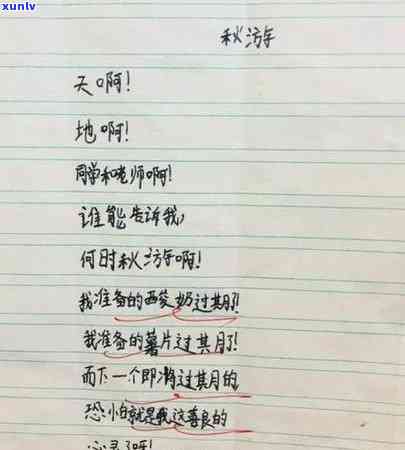 xunlv
秋游
天啊!
地啊!
同学和老师啊!
谁能告诉我,
何时秋游啊!
我准备的酸奶过期了!
我准备的薯片过期了!
而下一个即将过期的
恐怕就是我这善良的
心灵了呀!